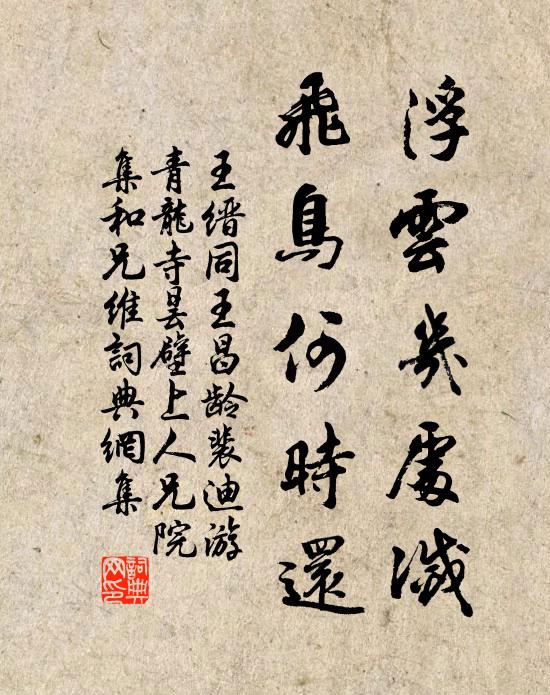 浮雲幾處滅
飛鳥何時還
王缙同王昌龄裴迪游
青龍寺昙壁上人兄院
集和兄維詞典網集
詞典
网印